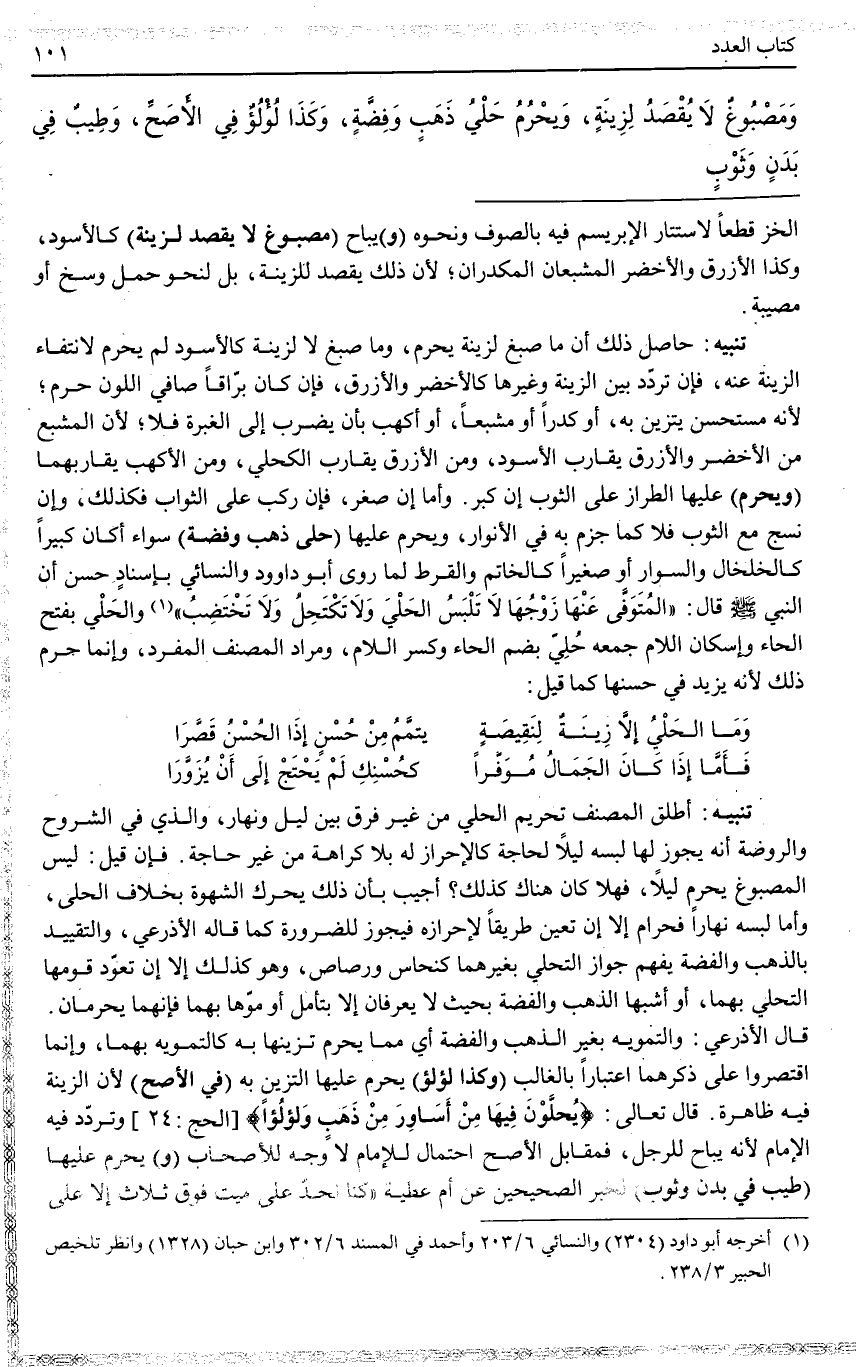 كتاب العدد
١٠١
وَمَصْبُوغٌ لَا يُقْصَدُ لِزِينَةٍ، وَيَحْرُمُ حَلْيُ ذَهَبٍ وَفِضَّةٍ، وَكَذَا لُؤْلُؤٌ فِي الأَصَحِّ، وَطِيبٌ فِي
بَدَنٍ وَثَوْبٍ
الخز قطعاً لاستتار الإبريسم فيه بالصوف ونحوه (و)يباح (مصبوغ لا يقصد لزينة) كالأسود،
وكذا الأزرق والأخضر المشبعان المكدران؛ لأن ذلك يقصد للزينة، بل لنحو حمل وسخ أو
مصيبة.
تنبيه: حاصل ذلك أن ما صبغ لزينة يحرم، وما صبغ لا لزينة كالأسود لم يحرم لانتفاء
الزينة عنه، فإن تردّد بين الزينة وغيرها كالأخضر والأزرق، فإن كان برّاقاً صافي اللون حرم؛
لأنه مستحسن يتزين به، أو كدراً أو مشبعاً، أو أكهب بأن يضرب إلى الغبرة فلا؛ لأن المشبع
من الأخضر والأزرق يقارب الأسود، ومن الأزرق يقارب الكحلي، ومن الأكهب يقاربهما
(ويحرم) عليها الطراز على الثوب إن كبر. وأما إن صغر، فإن ركب على الثواب فكذلك، وإن
نسج مع الثوب فلا كما جزم به في الأنوار، ويحرم عليها (حلى ذهب وفضة) سواء أكان كبيراً
كالخلخال والسوار أو صغيراً كالخاتم والقرط لما روى أبو داوود والنسائي بإسنادٍ حسن أن
النبي ﷺ قال: «المُتَوَفَّى عَنْهَا زَوْجُهَا لَا تَلْبَسُ الحَلْيَ وَلَا تَكْتَحِلُ وَلَا تَخْتَضِبُ»(١) والحَلْي بفتح
الحاء وإسكان اللام جمعه حُلِيّ بضم الحاء وكسر اللام، ومراد المصنف المفرد، وإنما حرم
ذلك لأنه يزيد في حسنها كما قيل:
وَمَا الحَلْيُ إلَّا زِينَةٌ لِنَقِيصَةٍ يتمَّمُ مِنْ حُسْنٍ إذَا الحُسْنُ قَصَّرَا
فَأَمَّا إذَا كَانَ الجَمَالُ مُوَفَّراً كحُسْنِكِ لَمْ يَحْتَجْ إلَى أَنْ يُزَوَّرَا
تنبيه: أطلق المصنف تحريم الحلي من غير فرق بين ليل ونهار، والذي في الشروح
والروضة أنه يجوز لها لبسه ليلاً لحاجة كالإحراز له بلا كراهة من غير حاجة. فإن قيل: لبس
المصبوغ يحرم ليلاً، فهلا كان هناك كذلك؟ أجيب بأن ذلك يحرك الشهوة بخلاف الحلى،
وأما لبسه نهاراً فحرام إلا إن تعين طريقاً لإحرازه فيجوز للضرورة كما قاله الأذرعي، والتقييد
بالذهب والفضة يفهم جواز التحلي بغيرهما كنحاس ورصاص، وهو كذلك إلا إن تعوّد قومها
التحلي بهما، أو أشبها الذهب والفضة بحيث لا يعرفان إلا بتأمل أو موّها بهما فإنهما يحرمان.
قال الأذرعي: والتمويه بغير الذهب والفضة أي مما يحرم تزينها به كالتمويه بهما، وإنما
اقتصروا على ذكرهما اعتباراً بالغالب (وكذا لؤلؤ) يحرم عليها التزين به (في الأصح) لأن الزينة
فيه ظاهرة. قال تعالى: ﴿يُحَلَّوْنَ فِيهَا مِنْ أَسَاوِرَ مِنْ ذَهَبٍ وَلُؤلُؤاً﴾ [الحج: ٢٤ ] وتردّد فيه
الإمام لأنه يباح للرجل، فمقابل الأصح احتمال للإمام لا وجه للأصحاب (و) يحرم عليها
(طيب في بدن وثوب) لخبر الصحيحين عن أم عطية «كنا نحدّ على ميت فوق ثلاث إلا على
(١) أخرجه أبو داود (٢٣٠٤) والنسائي ٢٠٣/٦ وأحمد في المسند ٣٠٢/٦ وابن حبان (١٣٢٨) وانظر تلخيص
الحبير ٢٣٨/٣.